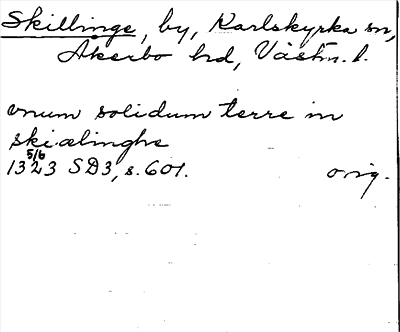 Skillinge, by, Karlskyrka sn,
Åkerbo hd, Västm. l.
unum solidum terre in
skiælinghe
1323 5/6 SD3, s. 601. orig.